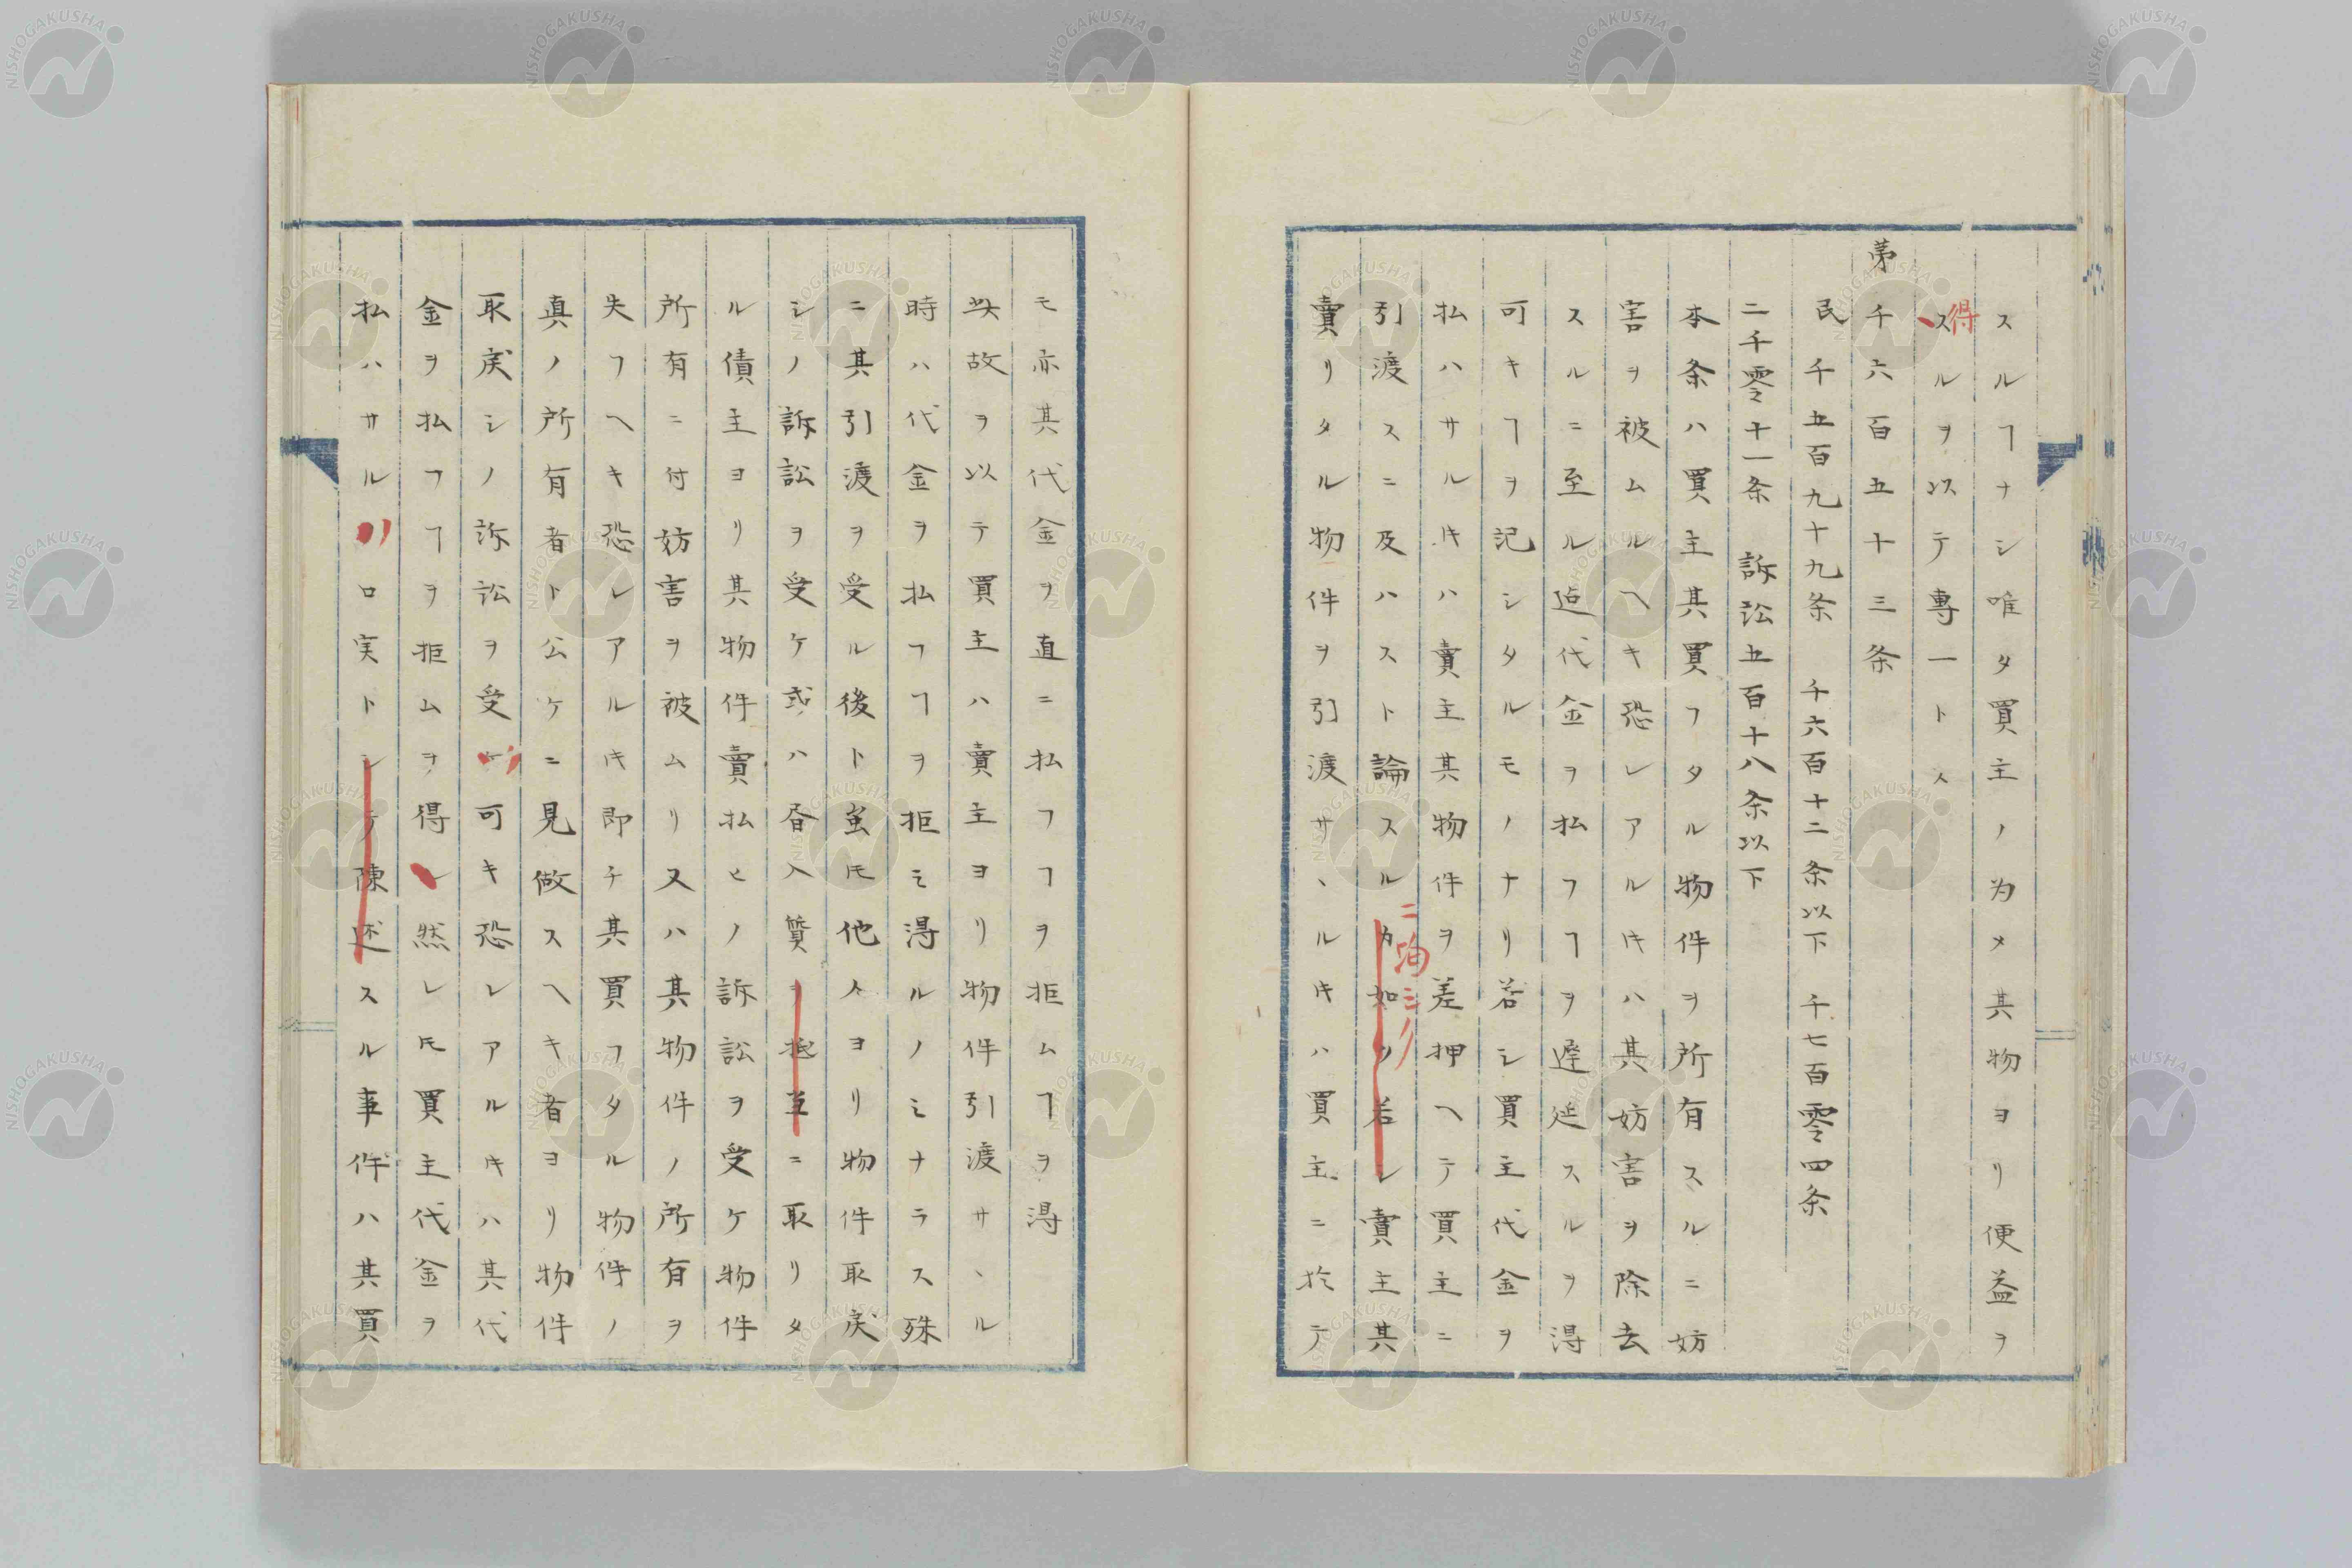 スルヿナシ唯タ買主ノ為メ其物ヨリ便益ヲ
得
スルヲ以テ專一トス
第千六百五十三条
民千五百九十九条 千六百十二条以下 千七百零四条
二千零十一条 訴訟五百十八条以下
本条ハ買主其買フタル物件ヲ所有スルニ妨
害ヲ被ムルヘキ恐レアルㇳキハ其妨害ヲ除去
スルニ至ル迠代金ヲ払フヿヲ遅延スルヲ得
可キヿヲ記シタルモノナリ若シ買主代金ヲ
払ハサルㇳキハ賣主其物件ヲ差押ヘテ買主ニ
引渡スニ及ハスト論スルカ如ク若シ賣主其
ニ泊ミ
賣リタル物件ヲ引渡サヽルㇳキハ買主ニ於テ
モ亦其代金ヲ直ニ払フヿヲ拒ムヿヲ得
此故ヲ以テ買主ハ賣主ヨリ物件引渡サヽル
時ハ代金ヲ払フヿヲ拒ミ得ルノミナラス殊
ニ其引渡ヲ受ル後ト虽𪜈他人ヨリ物件取戻
シノ訴訟ヲ受ケ或ハ書入質ヲ抵当ニ取リタ
ル債主ヨリ其物件賣払ヒノ訴訟ヲ受ケ物件
所有ニ付妨害ヲ被ムリ又ハ其物件ノ所有ヲ
失フヘキ恐レアルㇳキ即チ其買フタル物件ノ
真ノ所有者ト公ケニ見做スヘキ者ヨリ物件
取戻シノ訴訟ヲ受ケ可キ恐レアルㇳキハ其代
金ヲ払フヿヲ拒ムヲ得ル然レ𪜈買主代金ヲ
払ハサルロ実トシテ陳述スル事件ハ其買
NISHOGAKUSHA